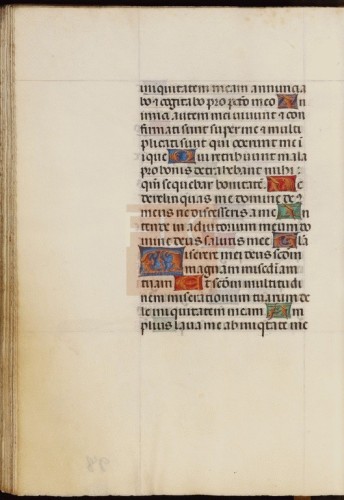 iniquitatem meam annuncia
bo & cogitabo pro pctō meo In
imici autem mei vivunt & con
firmati sunt super me & multi
plicati sunt qui oderunt me i
nique Qui retribuunt mala
pro bonis detrahebant mihi :
qm̄ sequebar bonitatē Ne
derelinquas me domine de9
meus ne discesseris a me In
tende in adiutorium meum do
mine deus salutis mee
iserere mei deus scdm
magnam misc̄diam
tuam Et scdm multitudi
nem miserationum tuarum de
le iniquitatem meam Am
plius lava me ab iniqtate me